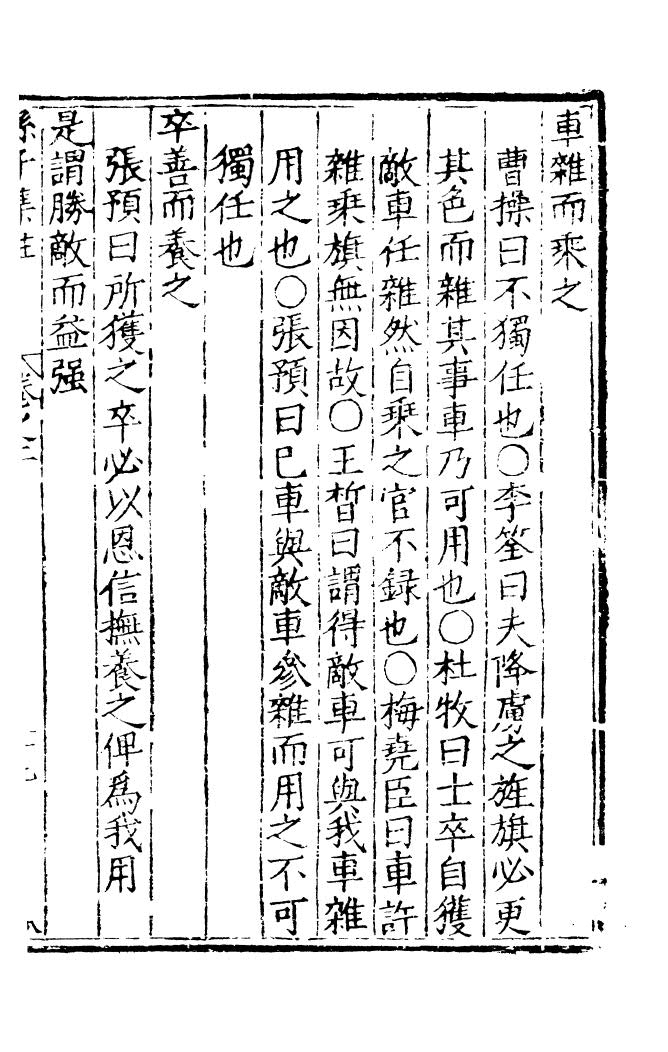 車雜而乘之
曹操曰不獨任也〇李筌曰夫降虜之旌旗必更
其色而雜其事車乃可用也〇杜牧曰士卒自獲
敵車任雜然自乘之官不録也〇梅堯臣曰車許
雜乘旗無因故〇王晳曰謂得敵車可與我車雜
用之也〇張預曰巳車與敵車參雜而用之不可
獨任也
卒善而養之
張預曰所獲之卒必以恩信撫養之俾爲我用
是謂勝敵而益强
孫子集註 卷之二